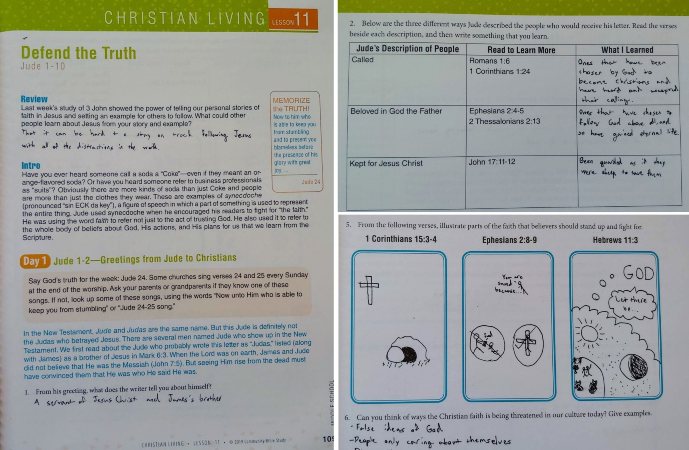 CHRISTIAN LIVING LESSON 11
Defend the Truth
Jude 1-10
Review
Last week's study of 3 John showed the power of telling our personal stories of
faith in Jesus and setting an example for others to follow. What could other
people learn about Jesus from your story and example?
That it can be hard to stay on track following Jesus
with all of the distractions in the world.
MEMORIZE
the TRUTH!
Now to him who
is able to keep you
from stumbling
and to present you
blameless before
the presence of his
glory with great
joy
Jude 24
Intro
Have you ever heard someone call a soda a "Coke"—even if they meant an or-
ange-flavored soda? Or have you heard someone refer to business professionals
as "suits"? Obviously there are more kinds of soda than just Coke and people
are more than just the clothes they wear. These are examples of synecdoche
(pronounced "sin ECK da key"), a figure of speech in which a part of something is used to represent
the entire thing. Jude used synecdoche when he encouraged his readers to fight for "the faith."
He was using the word faith to refer not just to the act of trusting God. He also used it to refer to
the whole body of beliefs about God, His actions, and His plans for us that we learn from the
Scripture.
Day 1 Jude 1-2—Greetings from Jude to Christians
Say God's truth for the week: Jude 24. Some churches sing verses 24 and 25 every Sunday
at the end of the worship. Ask your parents or grandparents if they know one of these
songs. If not, look up some of these songs, using the words "Now unto Him who is able to
keep you from stumbling" or "Jude 24-25 song."
In the New Testament, Jude and Judas are the same name. But this Jude is definitely not
the Judas who betrayed Jesus. There are several men named Jude who show up in the New
Testament. We first read about the Jude who probably wrote this letter as "Judas," listed (along
with James) as a brother of Jesus in Mark 6:3. When the Lord was on earth, James and Jude
did not believe that He was the Messiah (John 7:5). But seeing Him rise from the dead must
have convinced them that He was who He said He was.
1. From his greeting, what does the writer tell you about himself?
A servant of Jesus Christ and James's brother
CHRISTIAN LIVING • LESSON 11 • © 2019 Community Bible Study
2. Below are the three different ways Jude described the people who would receive his letter. Read the verses
beside each description, and then write something that you learn.
Jude's Description of People Read to Learn More What I Learned
Called
Romans 1:6
1 Corinthians 1:24
Ones that have been
chosen by God to
become christians and
have heard and accepted
that calling.
Beloved in God the Father
Ephesians 2:4-5
2 Thessalonians 2:13
Ones that have chosen to
follow God above all and
so have gained eternal life
Kept for Jesus Christ
John 17:11-12
Been guarded as if they
were sheep to save them
5. From the following verses, illustrate parts of the faith that believers should stand up and fight for.
1 Corinthians 15:3-4 Ephesians 2:8-9 Hebrews 11:3
You are
saved
because...
GOD
Let there
be
6. Can you think of ways the Christian faith is being threatened in our culture today? Give examples.
-False ideas of God.
-People only caring about themselves